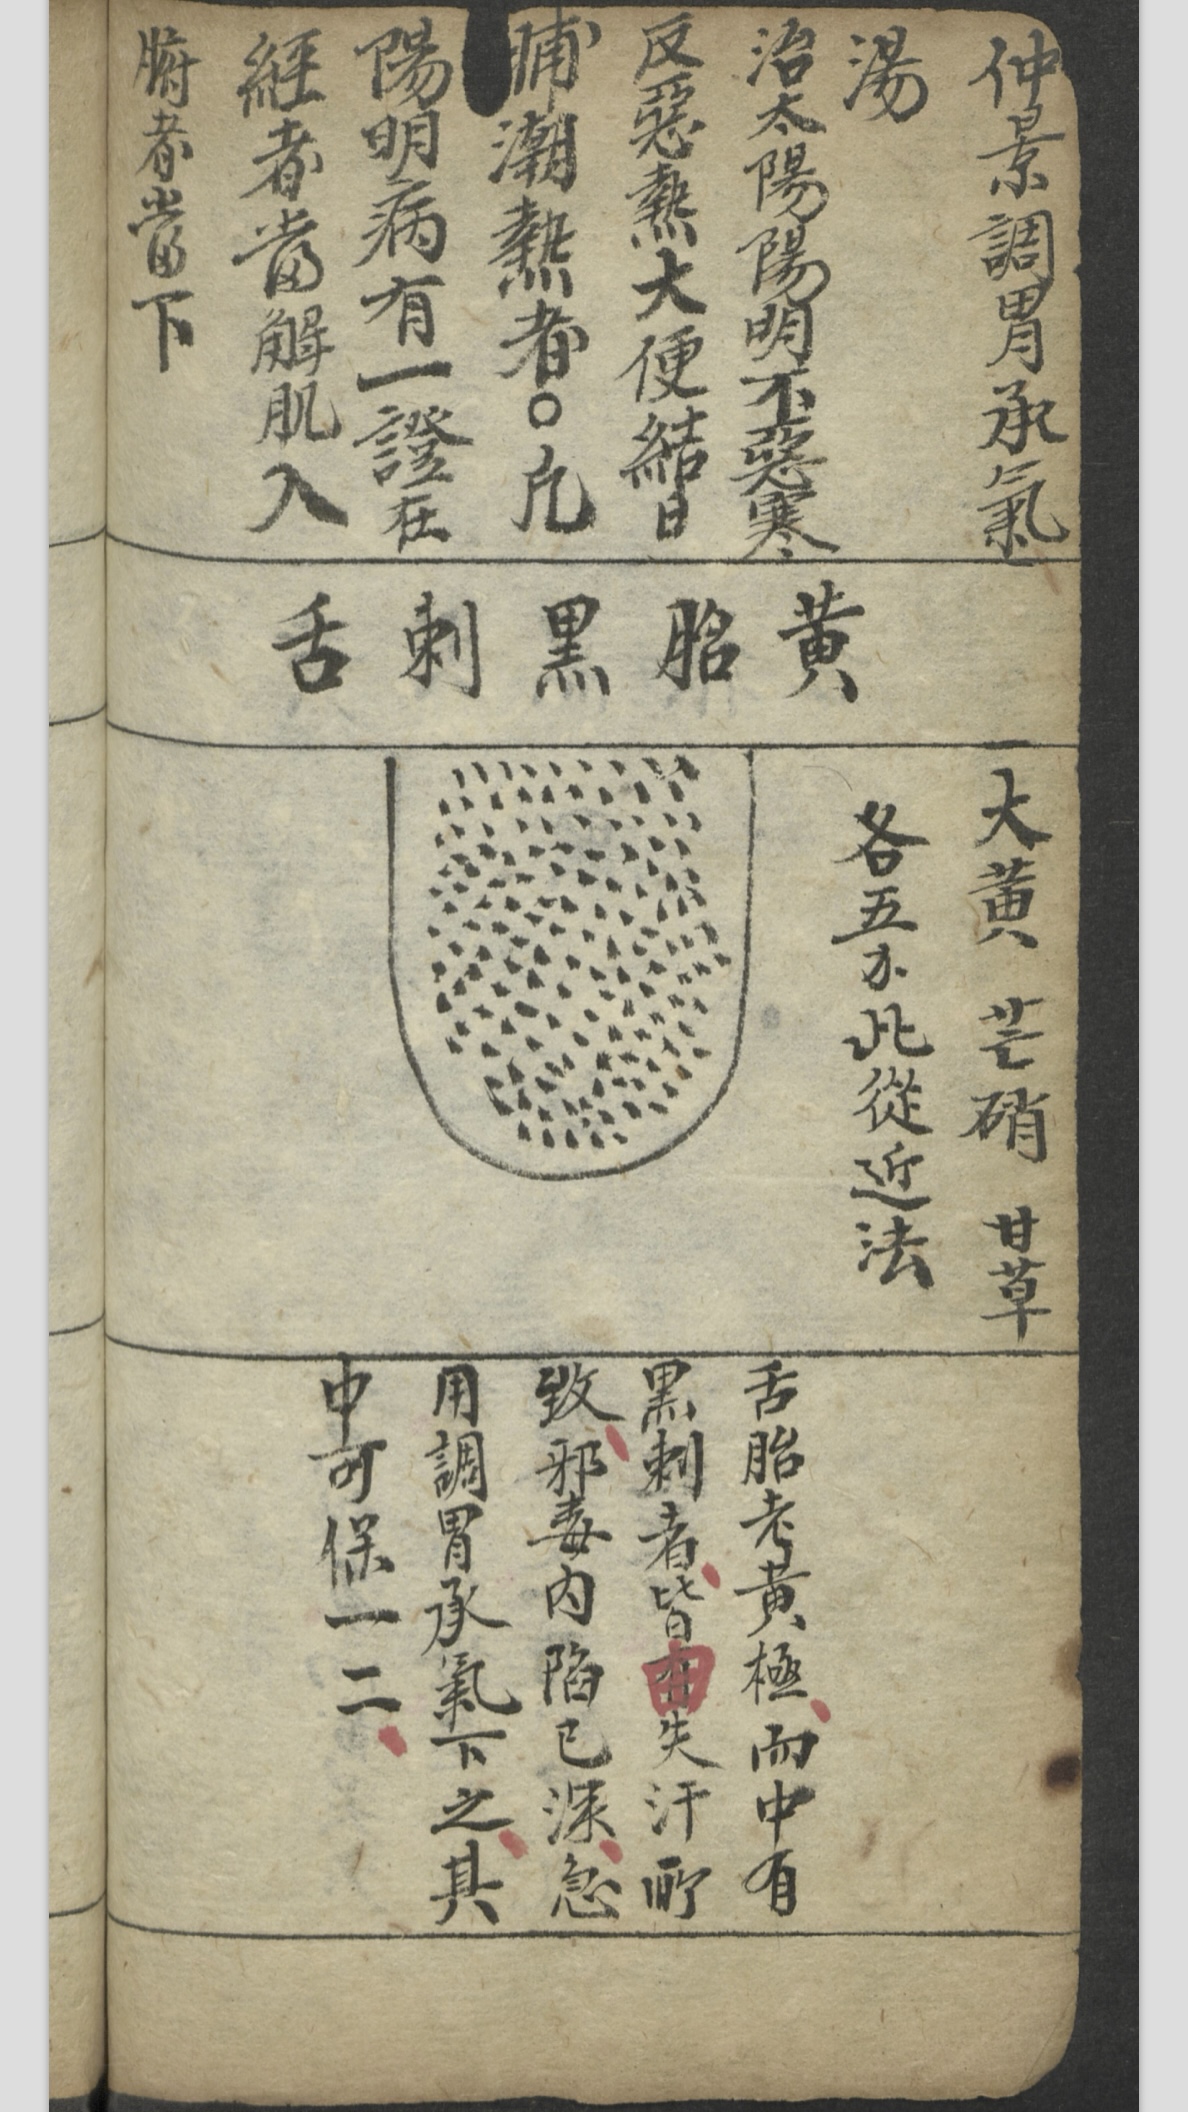 仲景調胃承氣
湯
治太陽陽明不惡寒
反惡熱大便結日
晡潮熱者○凡
陽明病有一證在
經者當解肌入
腑者當下
黃胎黑刺舌
一大黃 芒硝 甘草
各五分此從近法
舌胎老黃極而中有
黑刺者皆由失汗所
致邪毒内陷已深急
用調胃承氣下之其
中可保一二